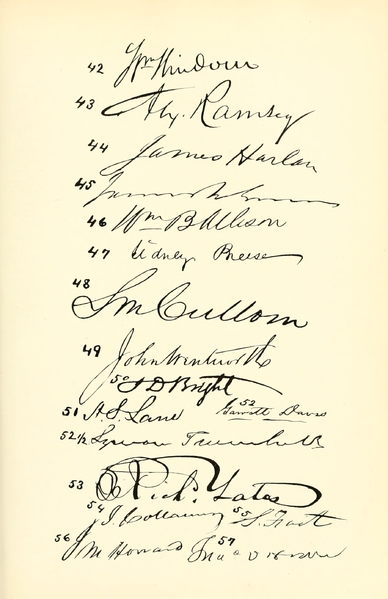 42 Wm Windom
43 Alex. Ramsey
44 James Harlan
45
46 Wm B Allison
47 Sidney Breese
48 S M Cullom
49 John Wentworth
50 J D Bright
51 H. S. Lane 52 Garrett Davis
52½ Lyman Trumbull
53 Rich. Yates
54 J. Collamer 55 S. Foot
56 J M Howard 57